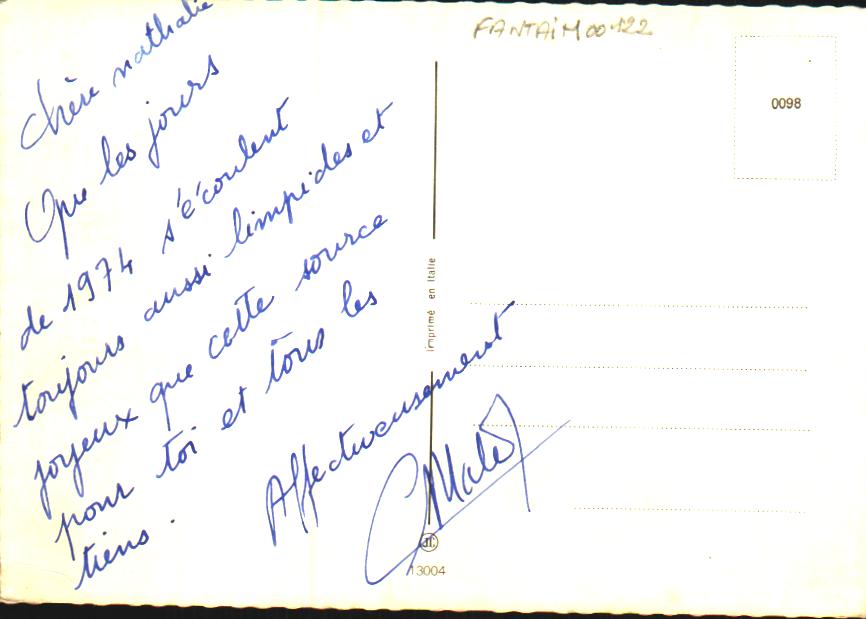 Chère nathalie
Que les jours
de 1974 s'écoulent
toujours aussi limpides et
joyeux que cette source
pour toi et tous les
tiens.
Affectueusement
FANTAiM00122
0098
Imprimé en Italie
13004